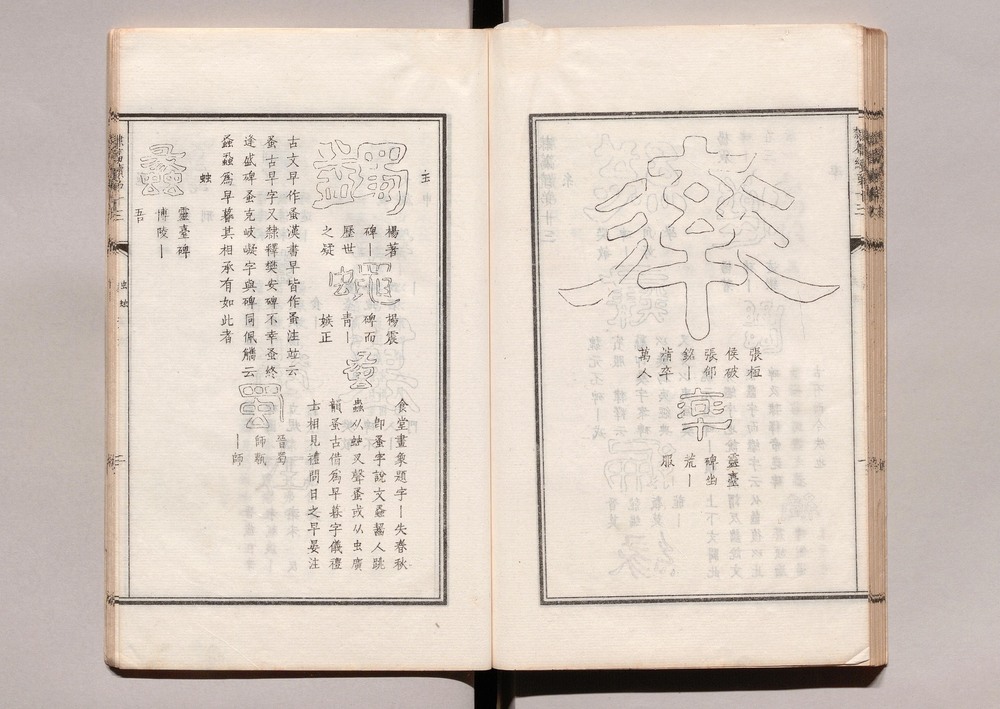 率
張桓
侯破
張郃
銘丨
精卒
萬人
率
靈臺
碑丨
荒丨
服
蠲
楊著
碑丨
歷世
之疑
楊震
碑而
青丨
嫉正
蚤
食堂畫象題字丨失春秋
即蚤字說文蚤齧人跳
蟲从䖵叉聲蚤或从虫廣
韻蚤古借爲早暮字儀禮
士相見禮問日之早晏注
古文早作蚤漢書早皆作蚤注並云
蚤古早字又隸釋樊安碑不幸蚤終
逢盛碑蚤克岐嶷字與碑同佩觿云
蚤蝨爲早暮其相承有如此者
蜀
晉蜀
師
丨師
䖵
蠡
靈臺碑
博陵丨
吾